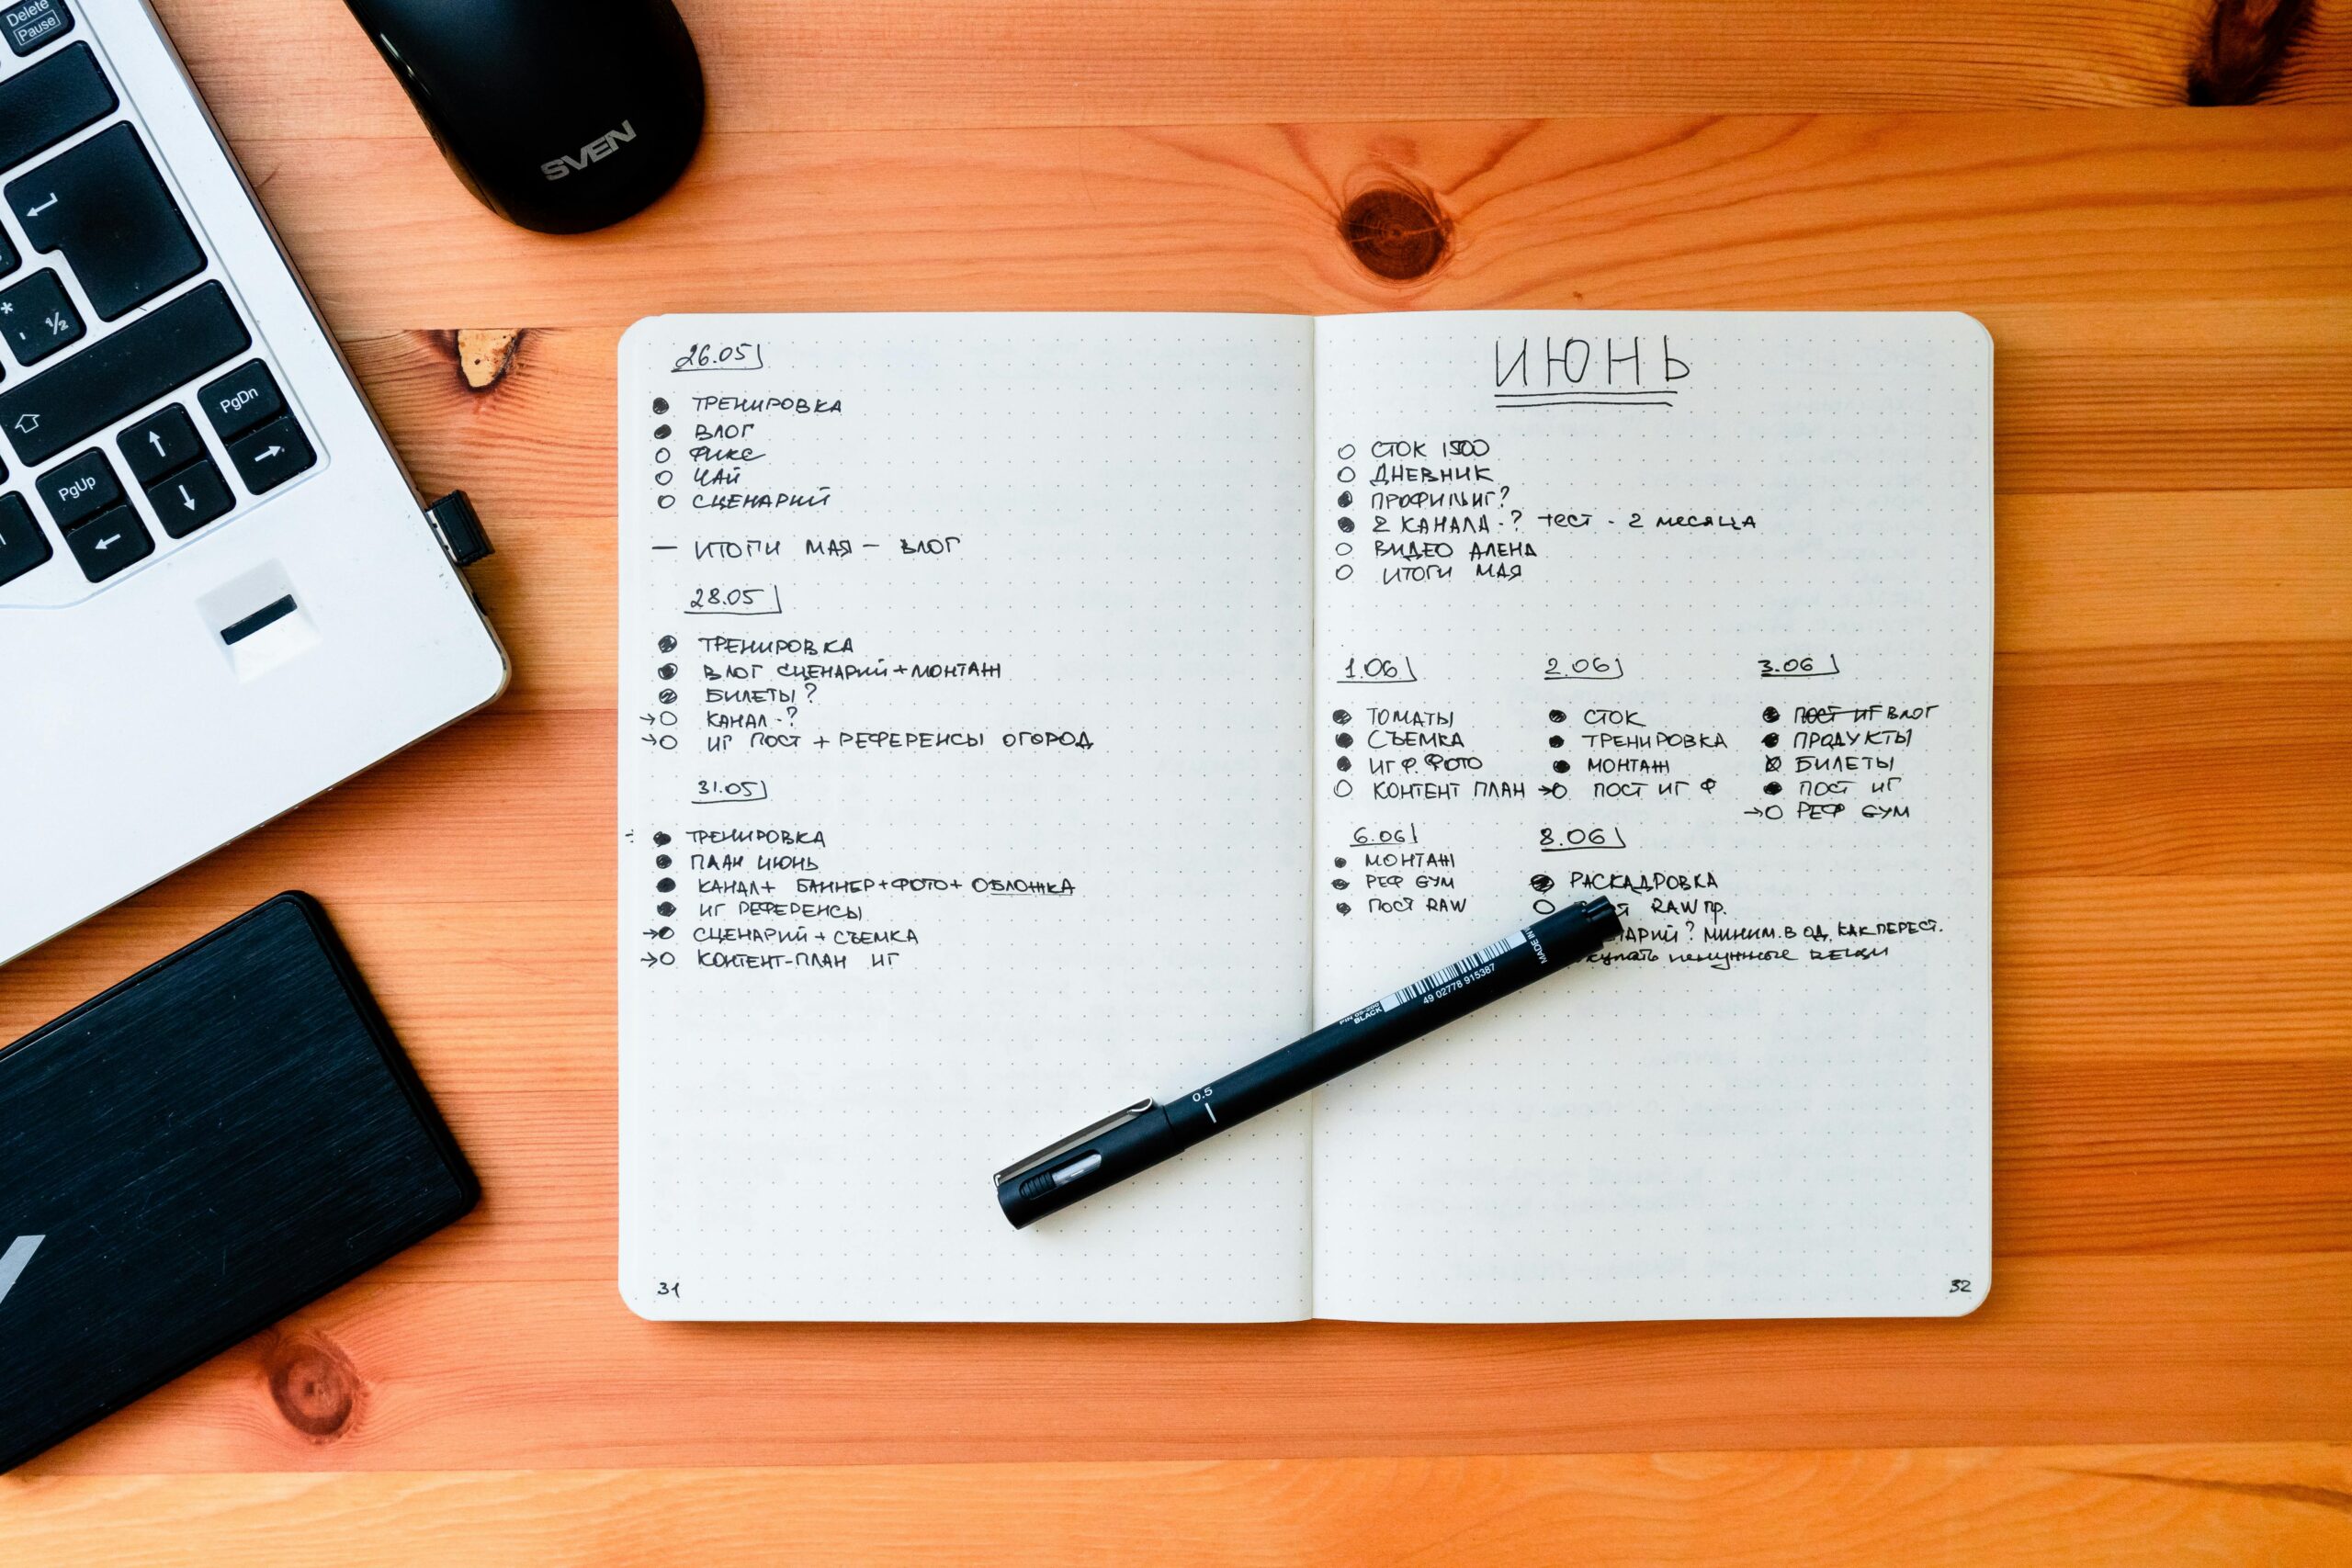 Delete
Pause
SVEN
½
PgDn
PgUp
26.05
ТРЕНИРОВКА
ВЛОГ
ФИКС
ЧАЙ
СЦЕНАРИЙ
— ИТОГИ МАЯ — ВЛОГ
28.05
ТРЕНИРОВКА
ВЛОГ СЦЕНАРИЙ + МОНТАЖ
БИЛЕТЫ?
→ КАНАЛ - ?
→ ИГ ПОСТ + РЕФЕРЕНСЫ ОГОРОД
31.05
ТРЕНИРОВКА
ПЛАН ИЮНЬ
КАНАЛ + БАННЕР + ФОТО + ОБЛОЖКА
ИГ РЕФЕРЕНСЫ
→ СЦЕНАРИЙ + СЪЕМКА
→ КОНТЕНТ-ПЛАН ИГ
31
ИЮНЬ
СТОК 1500
ДНЕВНИК
ПРОФИЛЬ ИГ?
2 КАНАЛА - ? тест - 2 месяца
ВИДЕО АЛЕНА
ИТОГИ МАЯ
1.06
ТОМАТЫ
СЪЕМКА
ИГ Ф. ФОТО
КОНТЕНТ ПЛАН
2.06
СТОК
ТРЕНИРОВКА
МОНТАЖ
→ ПОСТ ИГ Ф
3.06
ПОСТ ИГ ВЛОГ
ПРОДУКТЫ
БИЛЕТЫ
ПОСТ ИГ
→ РЕФ GYM
6.06
МОНТАЖ
РЕФ GYM
ПОСТ RAW
8.06
РАСКАДРОВКА
RAW пр.
? МИНИМ. В ОД. КАК ПЕРЕСТ.
ненужные вещи
32
MADE IN
49 02778 915387
BLACK
0.5